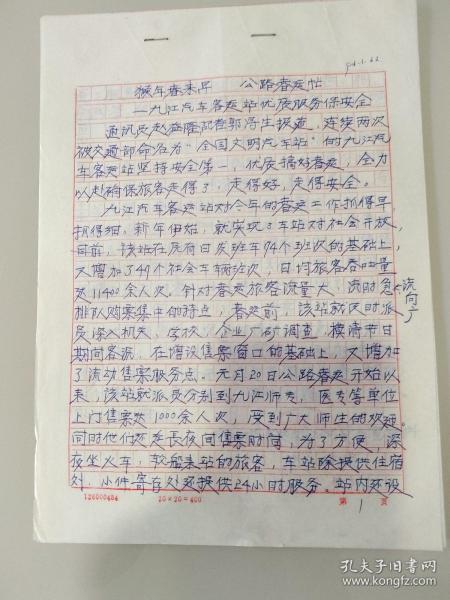 猴年春来早 公路春运忙
—九江汽车客运站优质服务保安全
通讯员赵 报道，连续两次
被交通部命名为"全国文明汽车站"的九江汽
车客运站坚持安全第一，优质搞好春运，全力
以赴确保旅客走得了，走得好，走得安全。
九江汽车客运站对今年的春运工作抓得早
抓得细。新年伊始，就实现了车站对社会开放，
目前，该站在原有日发班车94个班次的基础上，
又增加了49个社会车辆班次，日均旅客吞吐量
达11400余人次。针对春运旅客流量大，流时急、流向广
排队购票集中的特点，春运前，该站就及时派
员深入机关，学校，企业厂矿调查，摸清节日
期间客源，在增设售票窗口的基础上，又增加
了流动售票服务点。元月20日公路春运开始以
来，该站就派员分别到九江师专，医专等单位
上门售票达1000余人次，受到广大师生的欢迎。
同时他们还延长夜间售票时间，为了方便，深
夜坐火车，轮船来站的旅客，车站除提供住宿
处，小件寄存处还提供24小时服务。站内还设
126000484 20×20=400 第 1 页
孔夫子旧书网
www.kongfz.com